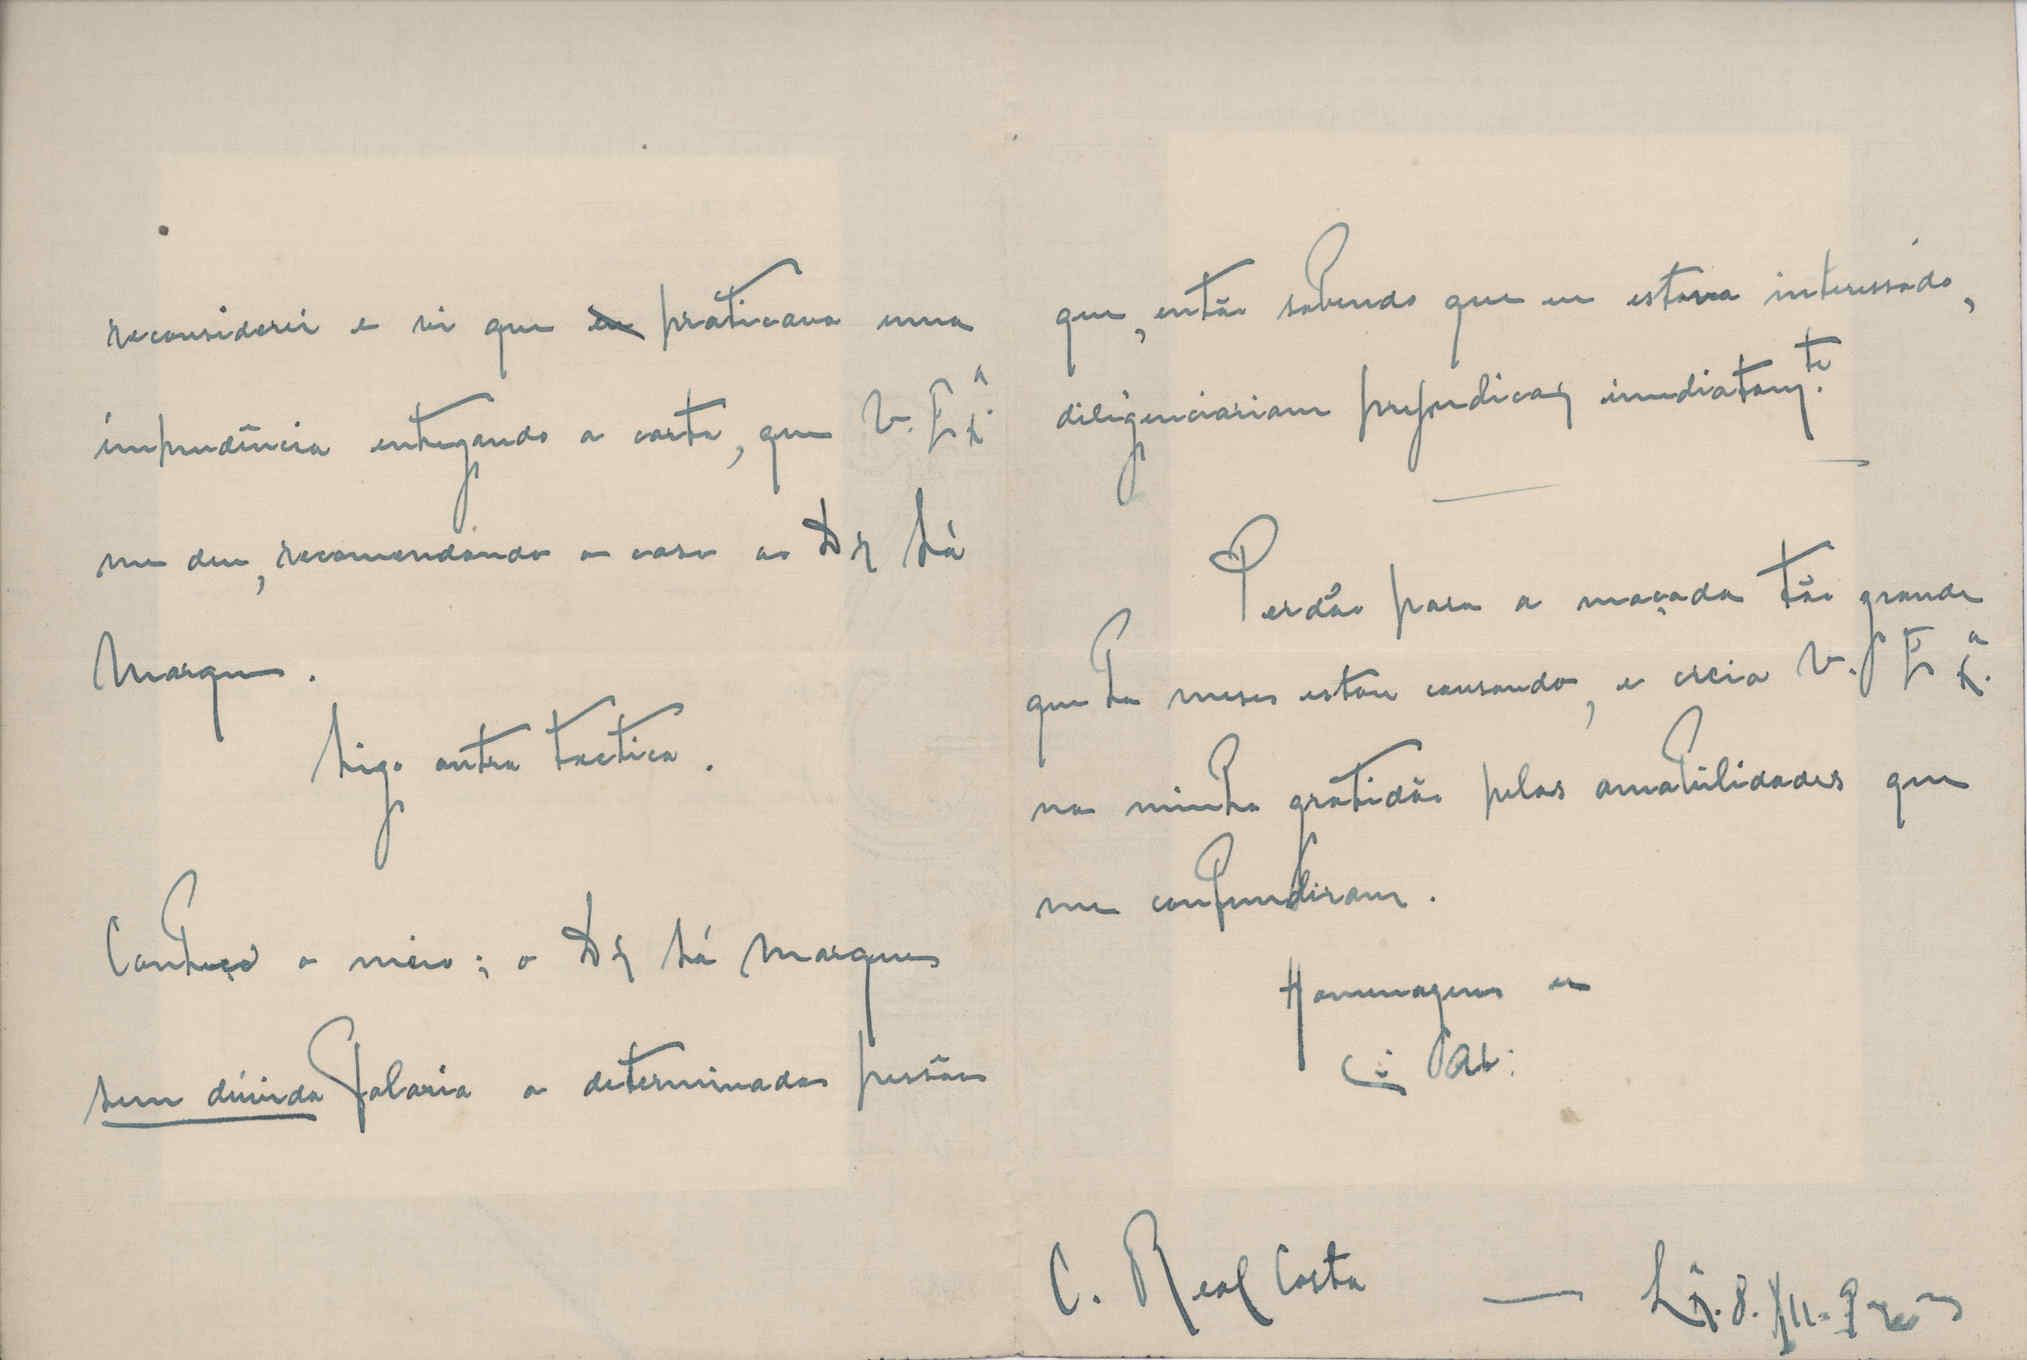 reconsiderei e vi que eu praticava uma
imprudência entregando a carta, que V. Exª
me deu, recomendando o caso ao Dr Sá
Marques.
Sigo outra tactica.
Conheço o meio; o Dr Sá Marques
sem dúvida falaria a determinadas pessoas
que, então sabendo que eu estava interessado,
diligenciariam prejudicar imediatamte.
Perdão para a maçada tão grande
que ha meses estou causando, e creia V. Exª
na minha gratidão pelas amabilidades que
me confundiram.
Homenagens
C. Real Costa — Lx. 8. XII.